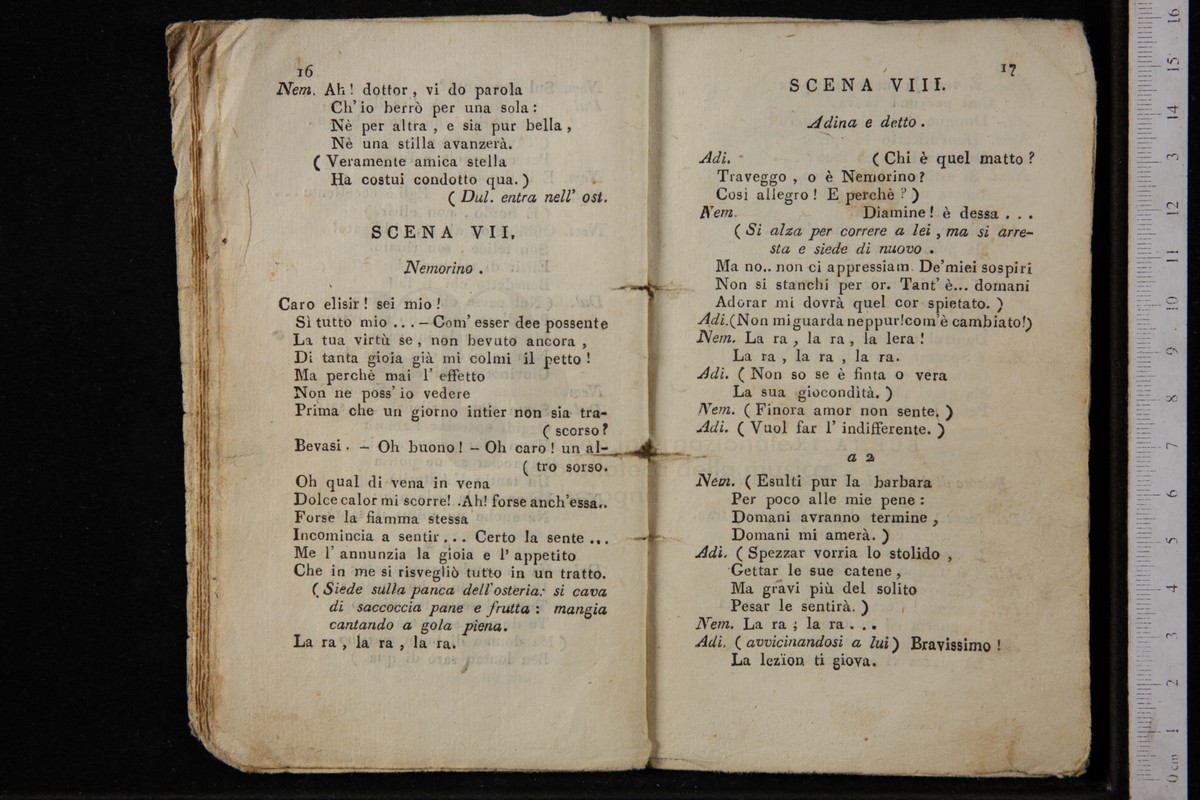 16
Nem. Ah! dottor, vi do parola
Ch'io berrò per una sola:
Nè per altra, e sia pur bella,
Nè una stilla avanzerà.
(Veramente amica stella
Ha costui condotto qua.)
(Dul. entra nell' ost.
SCENA VII.
Nemorino.
Caro elisir! sei mio!
Sì tutto mio ... — Com'esser dee possente
La tua virtù se, non bevuto ancora,
Di tanta gioia già mi colmi il petto!
Ma perchè mai l'effetto
Non ne poss'io vedere
Prima che un giorno intier non sia tra-
(scorso?
Bevasi. — Oh buono! — Oh caro! un al-
(tro sorso.
Oh qual di vena in vena
Dolce calor mi scorre! .Ah! forse anch'essa..
Forse la fiamma stessa
Incomincia a sentir... Certo la sente...
Me l'annunzia la gioia e l'appetito
Che in me si risvegliò tutto in un tratto.
(Siede sulla panca dell'osteria: si cava
di saccoccia pane e frutta: mangia
cantando a gola piena.
La ra, la ra, la ra.
17
SCENA VIII.
Adina e detto.
Adi. (Chi è quel matto?
Traveggo, o è Nemorino?
Così allegro! E perchè?)
Nem. Diamine! è dessa...
(Si alza per correre a lei, ma si arre-
sta e siede di nuovo.
Ma no.. non ci appressiam. De'miei sospiri
Non si stanchi per or. Tant'è... domani
Adorar mi dovrà quel cor spietato.)
Adi.(Non mi guarda neppur!com'è cambiato!)
Nem. La ra, la ra, la lera!
La ra, la ra, la ra.
Adi. (Non so se è finta o vera
La sua giocondità.)
Nem. (Finora amor non sente.)
Adi. (Vuol far l'indifferente.)
a 2
Nem. (Esulti pur la barbara
Per poco alle mie pene:
Domani avranno termine,
Domani mi amerà.)
Adi. (Spezzar vorria lo stolido,
Gettar le sue catene,
Ma gravi più del solito
Pesar le sentirà.)
Nem. La ra; la ra...
Adi. (avvicinandosi a lui) Bravissimo!
La lezion ti giova.
0 cm 1 2 3 4 5 6 7 8 9 10 11 12 13 14 15 16